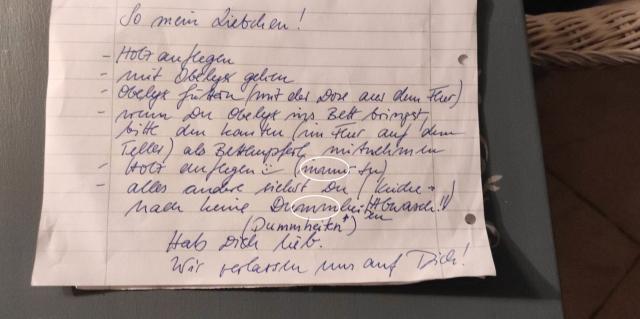 So mein Liebchen!
- Holz auflegen
- mit Obelyx gehen
- Obelyx füttern (mit der Dose aus dem Flur)
- wenn Du Obelyx ins Bett bringst,
bitte den Knochen (im Flur auf dem
Teller) als Betthupferl mitnehmen
- Holz auflegen :-)
- alles andere siehst Du (Küche
mach keine Dummheiten Abwasch!!
(Dummheiten*)
Hab Dich lieb.
Wir verlassen uns auf Dich!